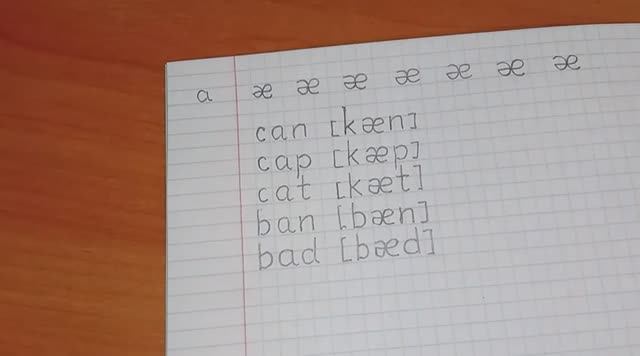 a æ æ æ æ æ æ æ
can [kæn]
cap [kæp]
cat [kæt]
ban [bæn]
bad [bæd]